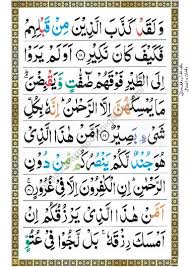 وَلَقَدْ كَذَّبَ الَّذِيْنَ مِنْ قَبْلِهِمْ
فَكَيْفَ كَانَ نَكِيْرِ ۝ اَوَلَمْ يَرَوْا
اِلَى الطَّيْرِ فَوْقَهُمْ صٰٓفّٰتٍ وَّيَقْبِضْنَ
مَا يُمْسِكُهُنَّ اِلَّا الرَّحْمٰنُ اِنَّهٗ بِكُلِّ
شَيْءٍۢ بَصِيْرٌ ۝ اَمَّنْ هٰذَا الَّذِيْ
هُوَ جُنْدٌ لَّكُمْ يَنْصُرُكُمْ مِّنْ دُوْنِ
الرَّحْمٰنِ اِنِ الْكٰفِرُوْنَ اِلَّا فِيْ غُرُوْرٍ ۝
اَمَّنْ هٰذَا الَّذِيْ يَرْزُقُكُمْ اِنْ
اَمْسَكَ رِزْقَهٗ بَلْ لَّجُّوْا فِيْ عُتُوٍّ